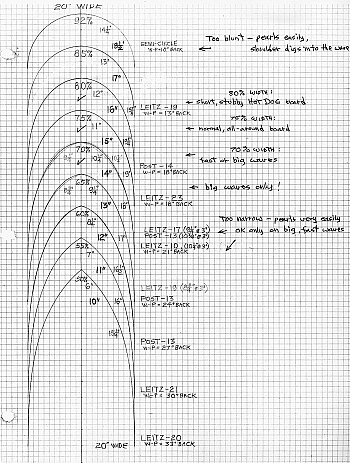 20" WIDE
92%
14½"
85%
18½"
SEMI-CIRCLE
W-P=10" BACK
Too blunt - pearls easily,
shoulder digs into the wave
13"
17"
80%
12"
80% WIDTH:
short, stubby HOT DOG board
16"
LEITZ-19
W-P=13" BACK
75%
11"
75% WIDTH:
normal, all-around board
15"
70%
70% WIDTH:
fast or big waves
POST-14
W-P=16" BACK
14"
19"
65%
big waves only!
LEITZ-23
W-P=18" BACK
13"
18"
60%
Too narrow - pearls very easily
ok only on big, fast waves
LEITZ-17
POST-13
12"
17"
LEITZ-10
W-P=21" BACK
55%
7"
11"
50%
6"
LEITZ-19
10"
POST-13
W-P=24" BACK
POST-13
W-P=27" BACK
LEITZ-21
W-P=30" BACK
20" WIDE
LEITZ-20
W-P=33" BACK